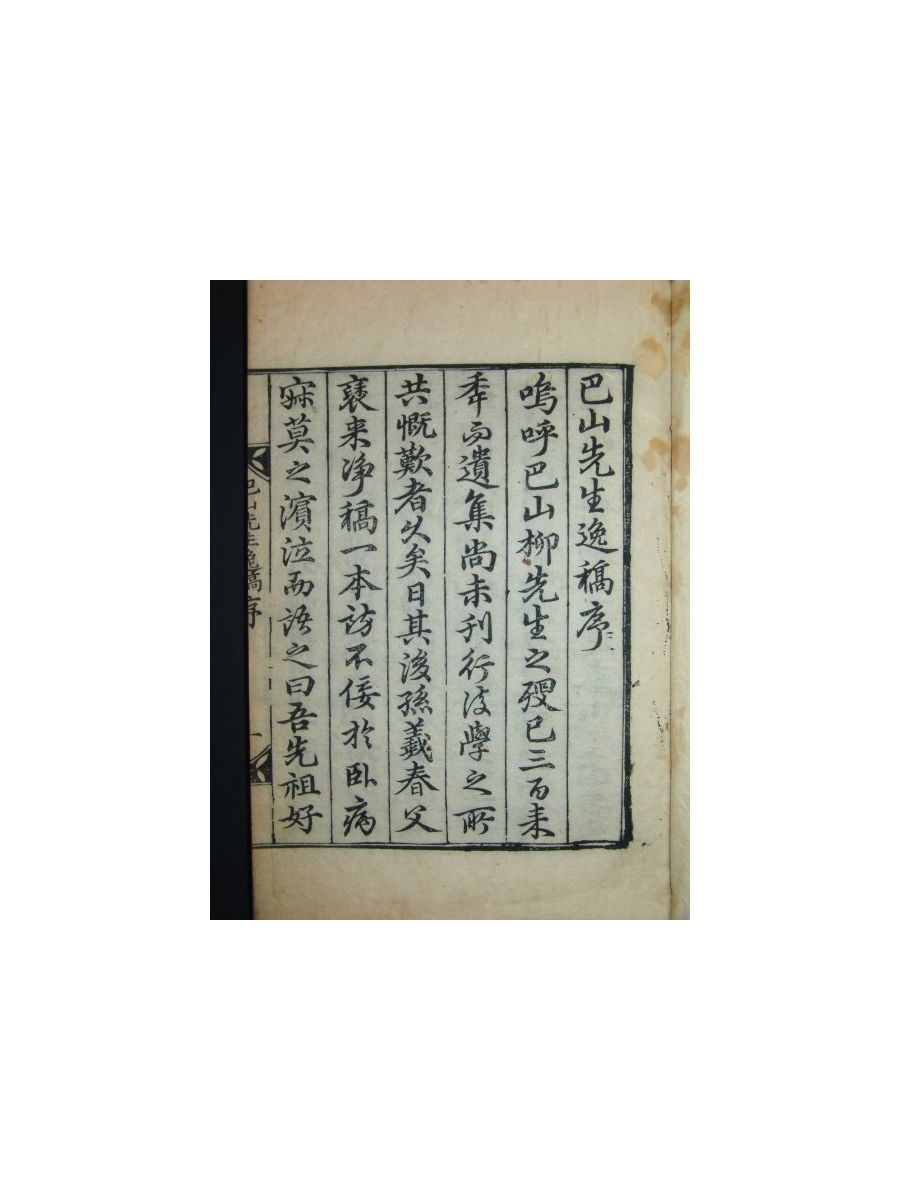 巴山先生逸稿序
嗚呼巴山柳先生之歿已三百来
年而遺集尚未刊行後學之所
共慨歎者久矣日其後孫義春父
袠来净稿一本訪不佞於卧病
寂莫之濱泣而語之曰吾先祖好
巴山先生逸稿序
一